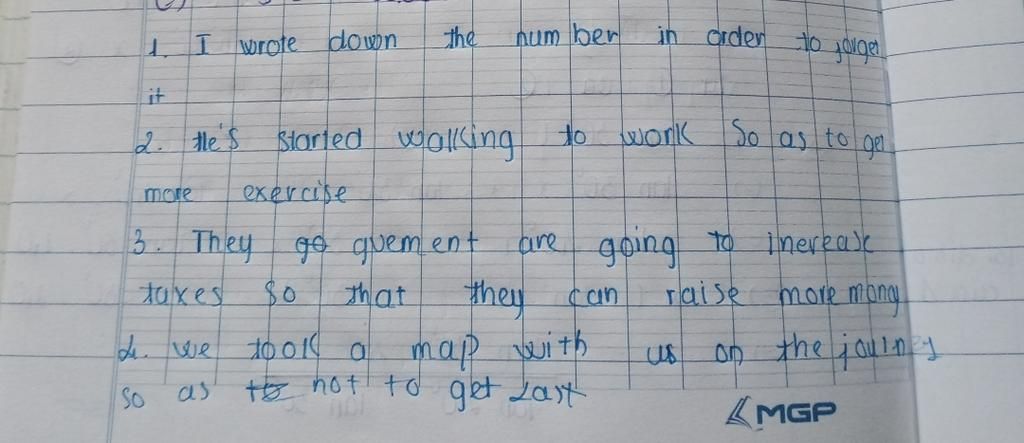 c)
1. I wrote down the number in order to forget
it
2. He's started walking to work so as to get
more exercise
3. They go guement are going to inerease
taxes so that they can raise more mony
4. we took a map with us on the journey
so as to not to get Last
MGP